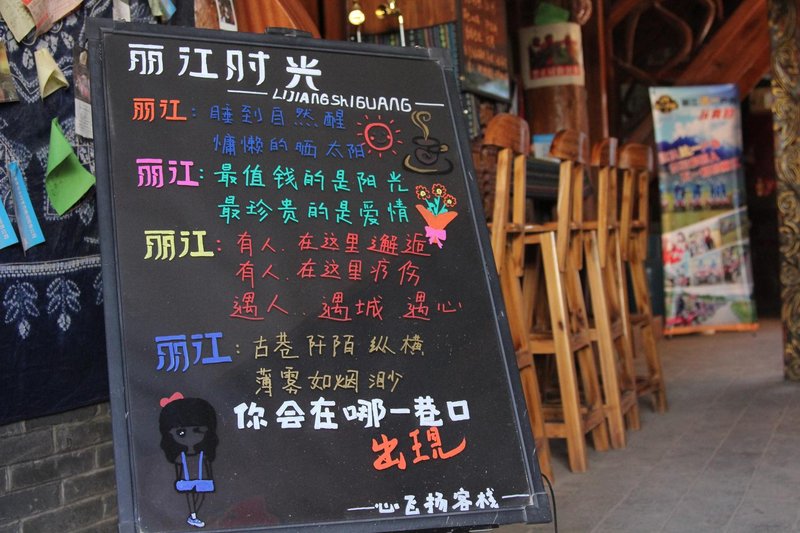 丽江时光
LIJIANGSHIGUANG
丽江:睡到自然醒
慵懒的晒太阳
丽江:最值钱的是阳光
最珍贵的是爱情
丽江:有人.在这里邂逅
有人.在这里疗伤
遇人..遇城 遇心
丽江:古巷阡陌纵横
薄雾如烟渺
你会在哪一巷口
出现
心飞扬客栈